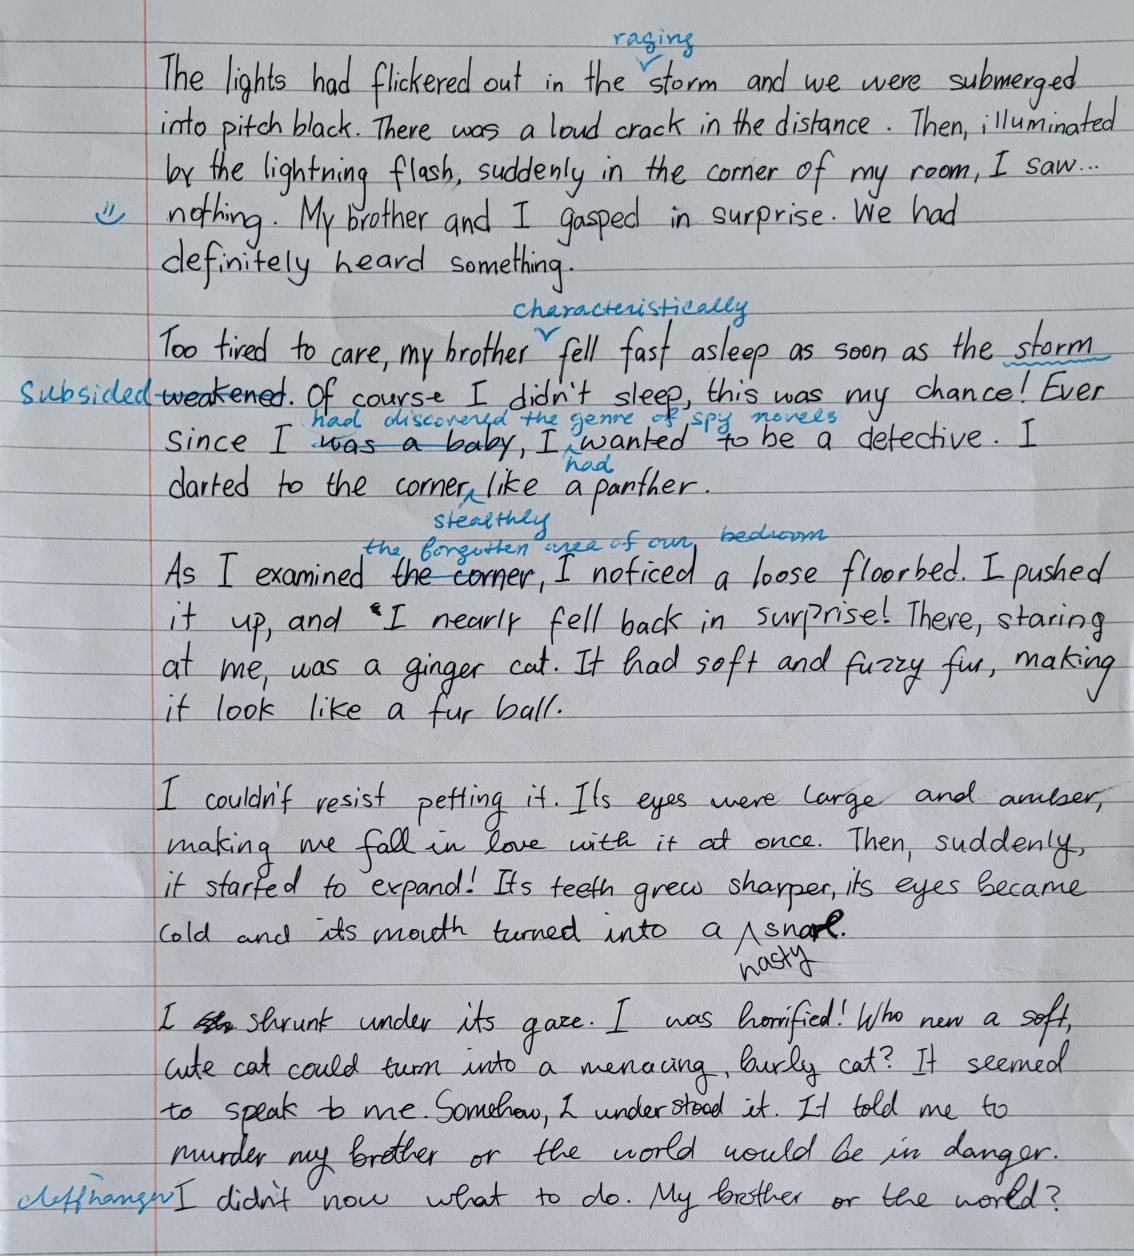 raging
The lights had flickered out in the storm and we were submerged
into pitch black. There was a loud crack in the distance. Then, illuminated
by the lightning flash, suddenly in the corner of my room, I saw...
nothing. My brother and I gasped in surprise. We had
definitely heard something.
characteristically
Too tired to care, my brother fell fast asleep as soon as the storm
subsided weakened. Of course I didn't sleep, this was my chance! Ever
had discovered the genre of spy novels
since I was a baby, I wanted to be a detective. I
had
darted to the corner, like a panther.
stealthly
the forgotten area of our bedroom
As I examined the corner, I noticed a loose floorbed. I pushed
it up, and I nearly fell back in surprise! There, staring
at me, was a ginger cat. It had soft and fuzzy fur, making
it look like a fur ball.
I couldn't resist petting it. Its eyes were large and amber,
making me fall in love with it at once. Then, suddenly,
it started to expand! Its teeth grew sharper, its eyes became
cold and its mouth turned into a snarl.
nasty
I shrunt under its gaze. I was horrified! Who new a soft,
cute cat could turn into a menacing, burly cat? It seemed
to speak to me. Somehow, I understood it. It told me to
murder my brother or the world would be in danger.
cleffhanger I didn't now what to do. My brother or the world?